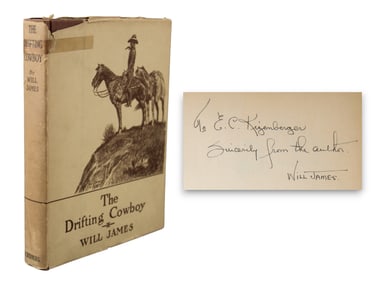 THE
DRIFTING
COWBOY
By
WILL
JAMES
The
Drifting Cowboy
WILL JAMES
To E. C. Kizenberger
Sincerely from the author.
WILL JAMES.